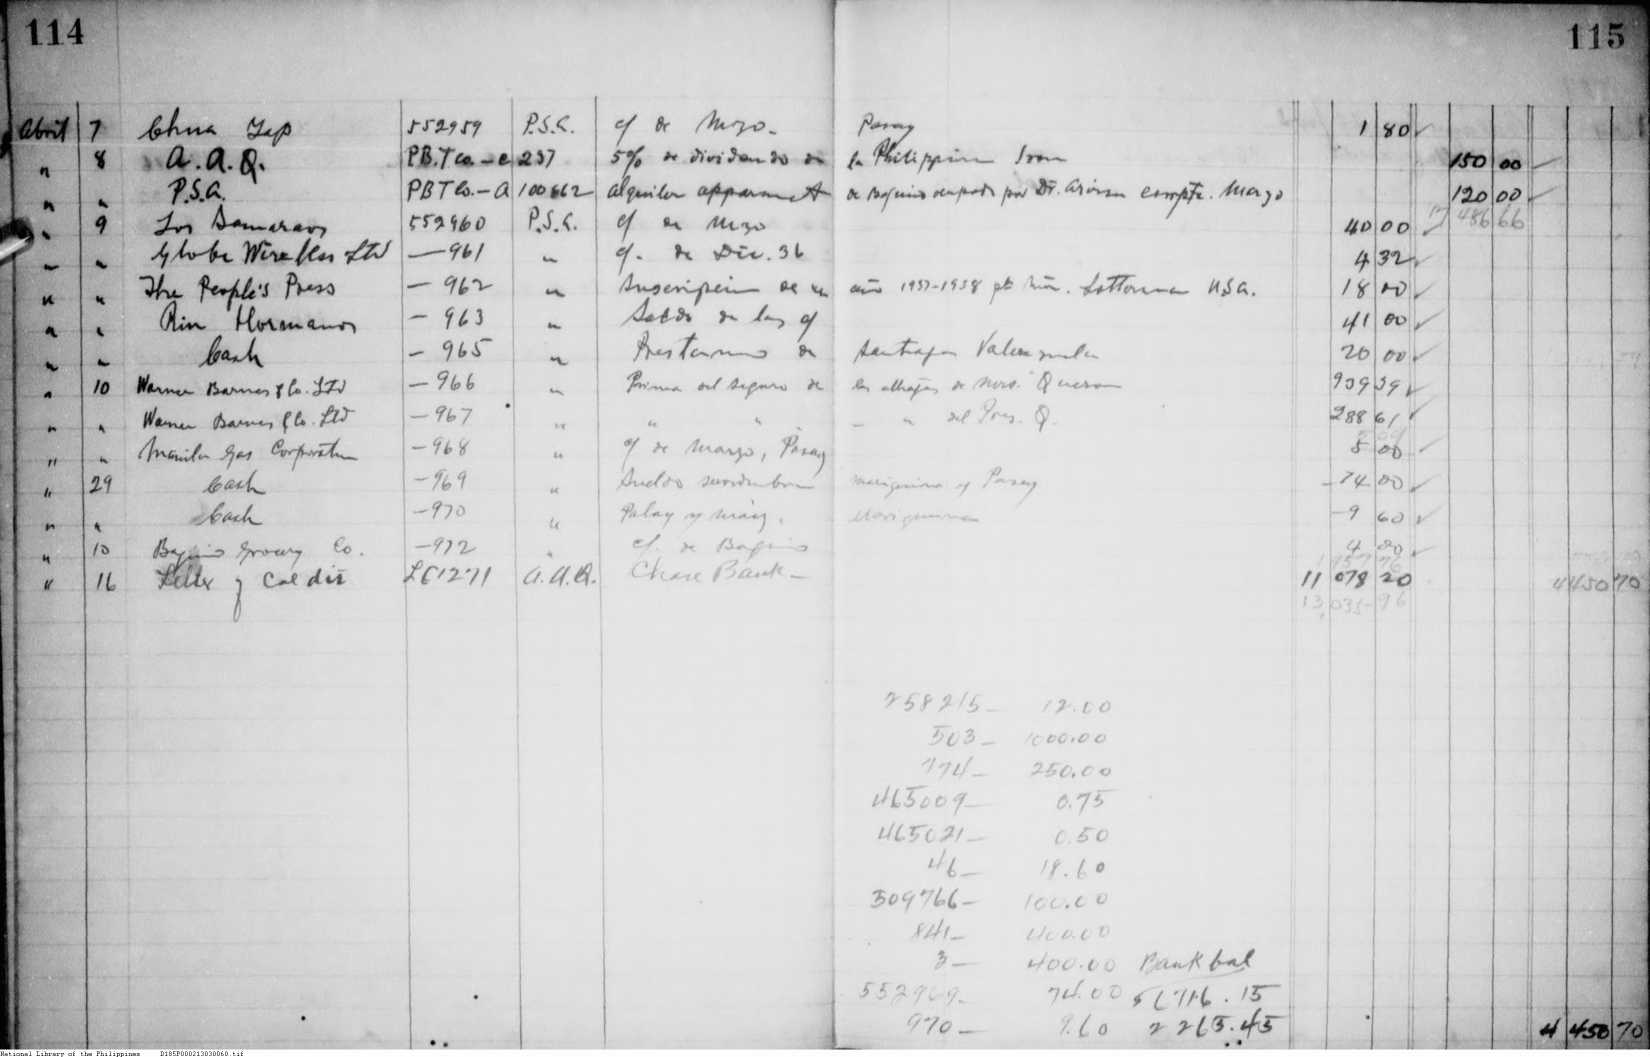 114 115
Abril 7 Chua Yap 552959 P.S.A. c/ de Mzo. Pasay 1 80 ✓
" 8 A. A. Q. P.B.T Co. - C 237 5% de dividendo de la Philippine Iron 150 00
" " P.S.A. PBT Co. - A 100662 alquiler de Baguio ocupado por Dr. Marzo 120 00
486 66
" 9 Los 552960 P.S.A. c/ de Mzo 40 00 ✓
" " Globe Wireless Ltd — 961 " c/. de Dic. 36 4 32 ✓
" " The People's Press — 962 " de un año 1937-1938 U.S.A. 18 00 ✓
" " — 963 " Saldo de las c/ 41 00 ✓
" " Cash — 965 " de Santiago 20 00 ✓
" 10 Warner Barnes & Co. Ltd — 966 " Prima del seguro de las alhajas de Quezon 939 39 ✓
" " Warner Barnes & Co. Ltd — 967 " " " — " del Pres. Q. 288 61 ✓
" " Manila Gas Corporation — 968 " c/ de Marzo, Pasay 5 00 ✓
" 29 Cash — 969 " Sueldo y Pasay 74 00 ✓
" " Cash — 970 " Palay y Maiz, 9 60 ✓
" 10 Baguio Grocery Co. — 972 " c/. de Baguio 4 00 ✓
" 16 Letter of Credit LC 1271 A.A.Q. Chase Bank — 11 078 20 4 450 70
13,035 96
258215 — 12.00
503 — 1000.00
774 — 250.00
465009 — 0.75
465021 — 0.50
46 — 18.60
309766 — 100.00
841 — 400.00
3 — 400.00 Bank bal
552969 — 74.00 716.15
970 — 9.60 2 265.45 4 450 70
National Library of the Philippines D185P000213030060.tif